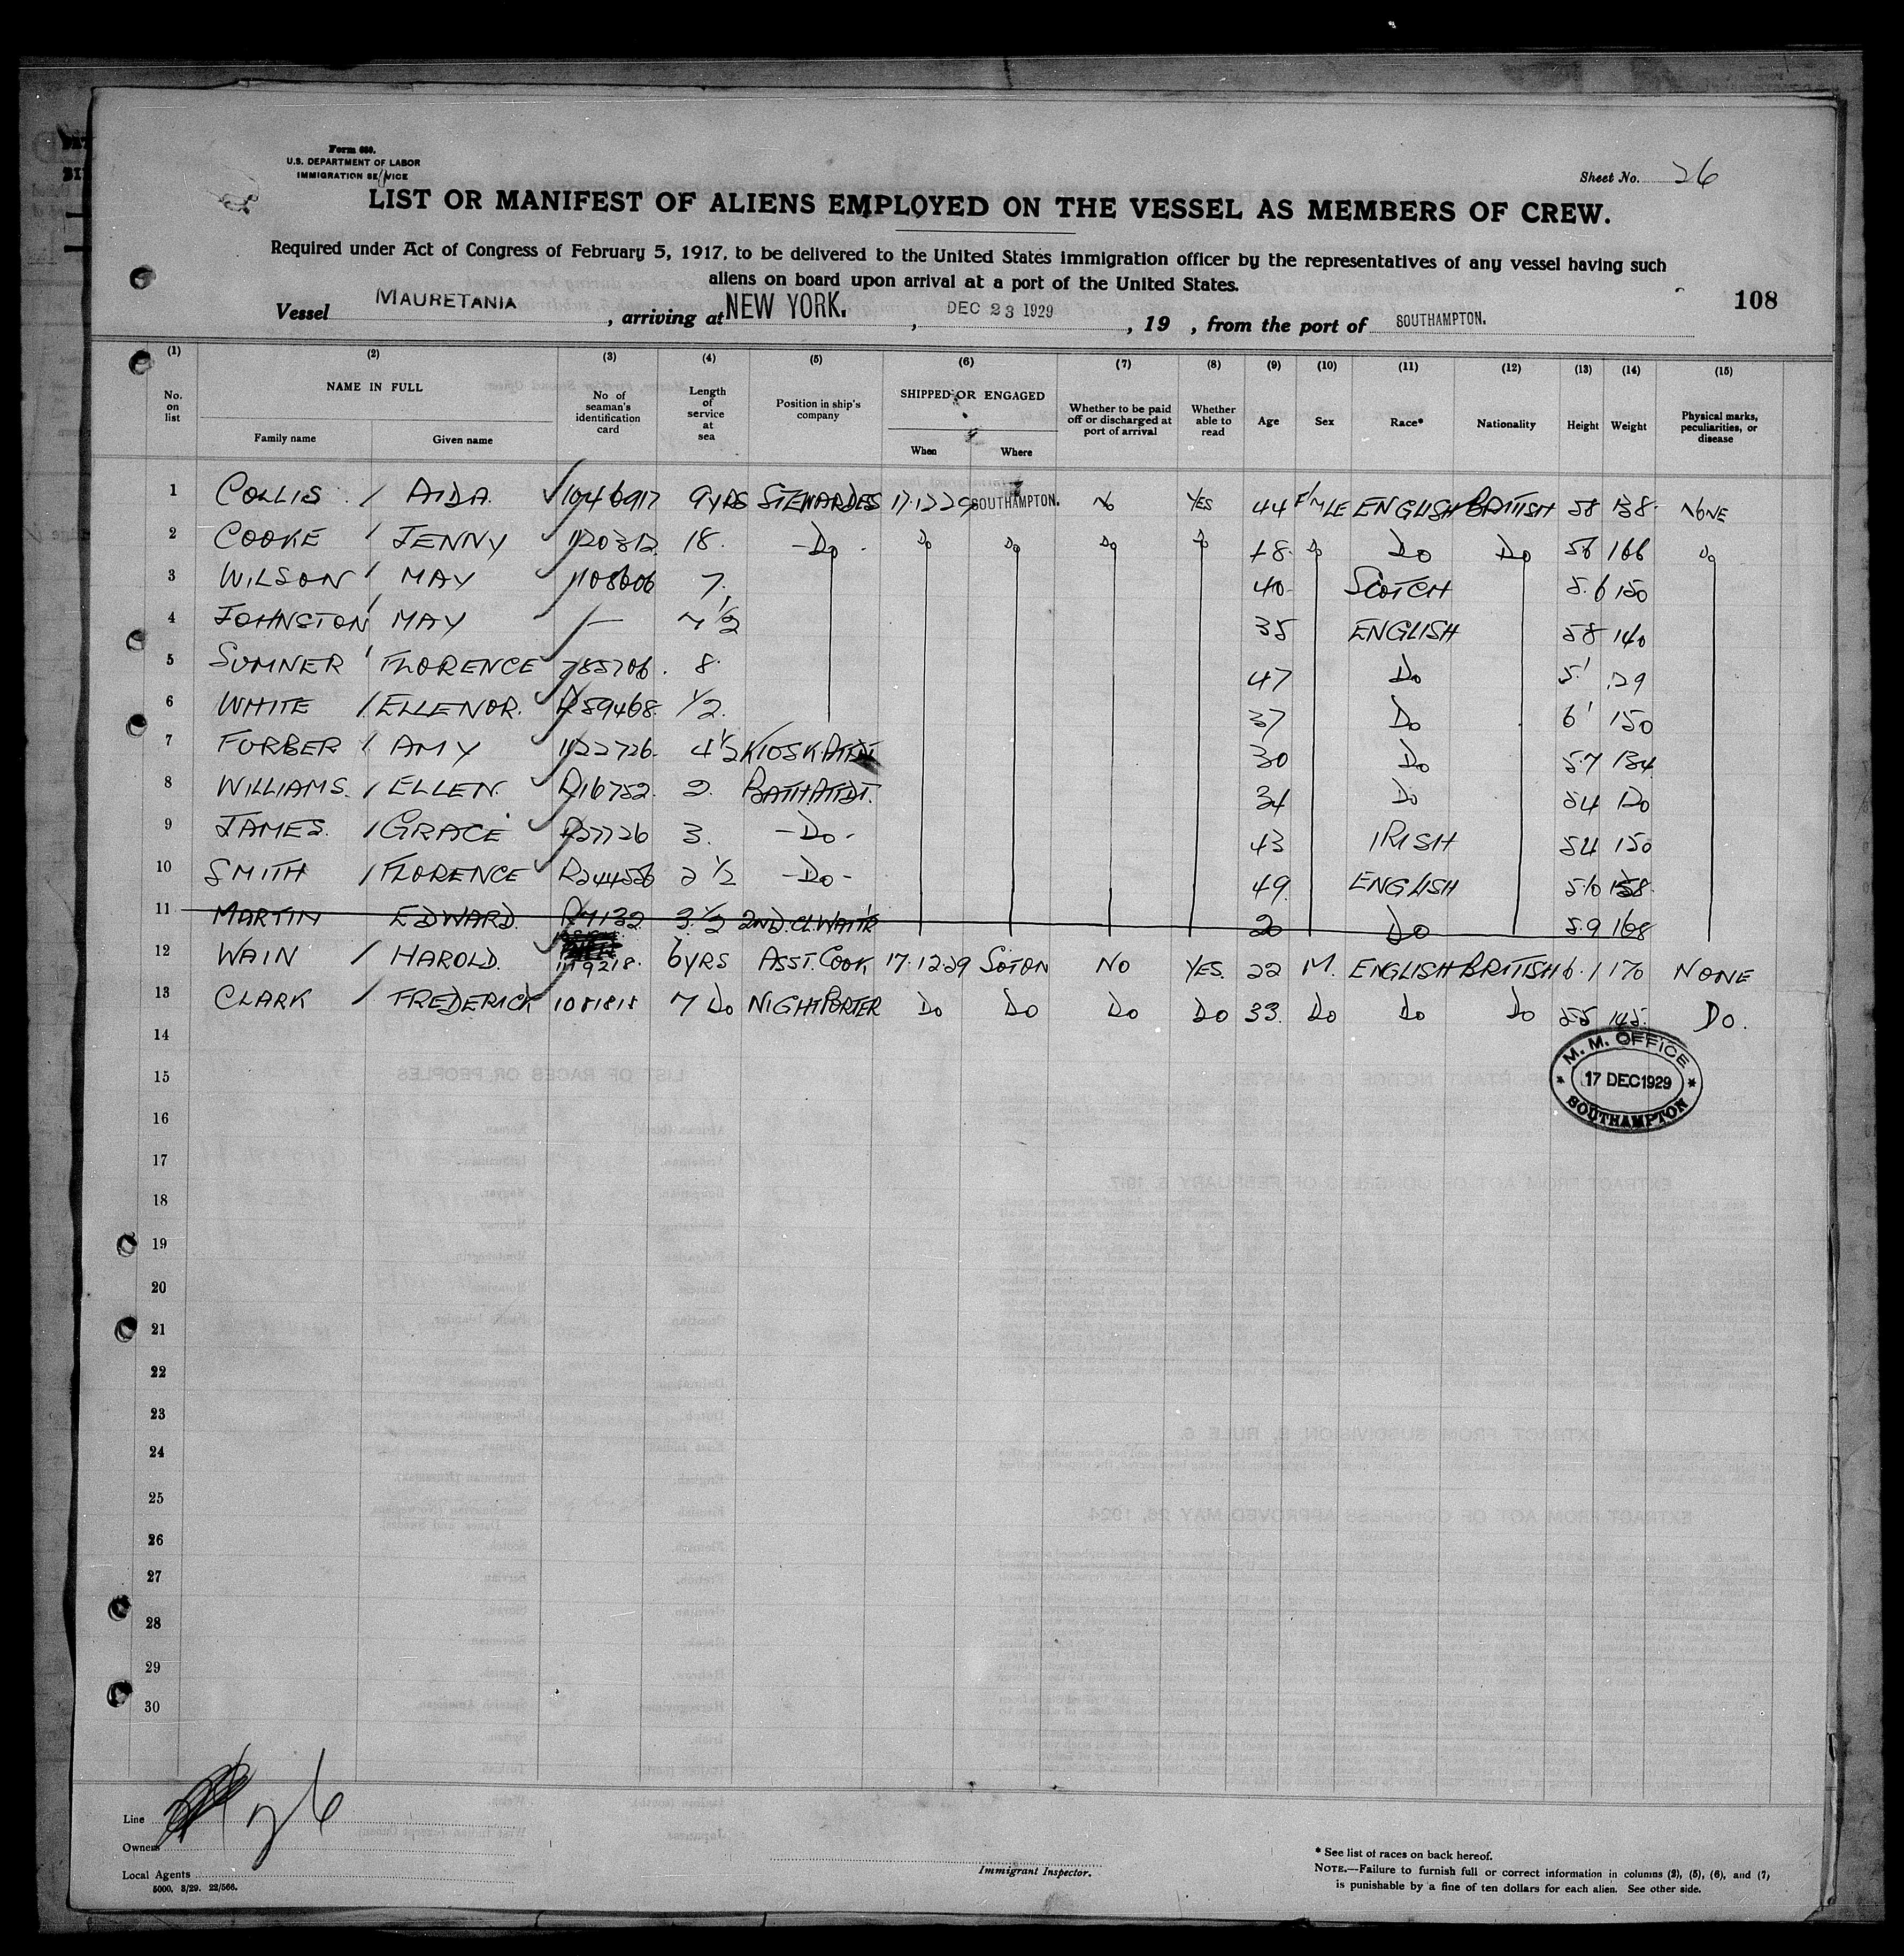 Form 680.
U.S. DEPARTMENT OF LABOR
IMMIGRATION SERVICE
Sheet No. 26
LIST OR MANIFEST OF ALIENS EMPLOYED ON THE VESSEL AS MEMBERS OF CREW.
Required under Act of Congress of February 5, 1917, to be delivered to the United States immigration officer by the representatives of any vessel having such
aliens on board upon arrival at a port of the United States.
108
Vessel MAURETANIA, arriving at NEW YORK., DEC 23 1929, 19 , from the port of SOUTHAMPTON.
(1) (2) (3) (4) (5) (6) (7) (8) (9) (10) (11) (12) (13) (14) (15)
No. on list NAME IN FULL Family name Given name No of seaman's identification card Length of service at sea Position in ship's company SHIPPED OR ENGAGED When Where Whether to be paid off or discharged at port of arrival Whether able to read Age Sex Race* Nationality Height Weight Physical marks, peculiarities, or disease
1 COLLIS / AIDA. 1046917 9YRS STEWARDES 17.12.29 SOUTHAMPTON. No YES 44 F/MLE ENGLISH BRITISH 58 138. NONE
2 COOKE / JENNY 1120312 18. -Do- Do Do Do Do 48. Do Do Do 56 166 Do
3 WILSON / MAY 1108606 7, 40 SCOTCH 5.6 150
4 JOHNSTON / MAY — 7 1/2 35 ENGLISH 58 140
5 SUMNER / FLORENCE 785706. 8. 47 Do 5' 129
6 WHITE / ELLENOR. R59468. 1/2. 37 Do 6' 150
7 FURBER / AMY 1122726. 4 1/2 KIOSK ATTDT 30 Do 5.7 134
8 WILLIAMS. / ELLEN. R16752. 2. BATH ATTDT. 34 Do 54 120
9 JAMES. / GRACE R27726 3. -Do- 43 IRISH 54 150
10 SMITH / FLORENCE R244556 2 1/2 -Do- 49. ENGLISH 5.10 158.
11 MARTIN EDWARD. R7132 3 1/2 2ND.CL.WAITR 20 Do 5.9 168
12 WAIN / HAROLD. 1119218. 6YRS ASST. COOK 17.12.29 SOTON NO YES. 22 M. ENGLISH BRITISH 6.1 170 NONE
13 CLARK / FREDERICK 1081818 7 Do NIGHT PORTER Do Do Do Do 33. Do Do Do 55 145. Do.
14
M. M. OFFICE
15
17 DEC 1929
SOUTHAMPTON
16
17
18
19
20
21
22
23
24
25
26
27
28
29
30
Line
Owners
Local Agents
5000, 3/29. 22/566.
Immigrant Inspector.
* See list of races on back hereof.
NOTE.—Failure to furnish full or correct information in columns (2), (5), (6), and (7)
is punishable by a fine of ten dollars for each alien. See other side.